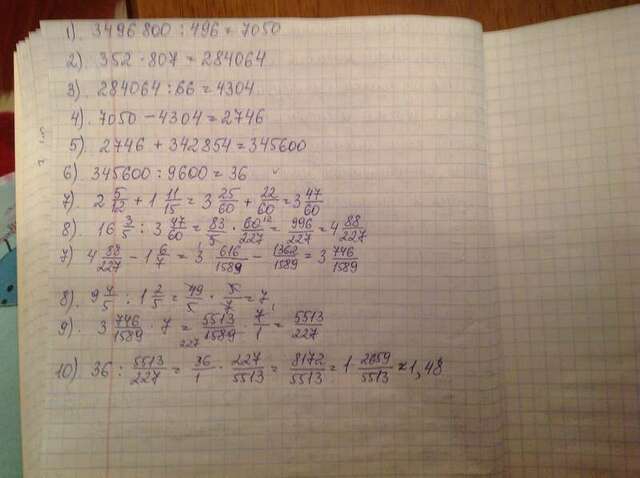 1). 3496800 : 496 = 7050
2). 352 · 807 = 284064
3). 284064 : 66 = 4304
4). 7050 - 4304 = 2746
5). 2746 + 342854 = 345600
6). 345600 : 9600 = 36
7). 2 5/12 + 1 11/15 = 3 25/60 + 22/60 = 3 47/60
8). 16 3/5 : 3 47/60 = 83/5 · 60/227 = 996/227 = 4 88/227
7) 4 88/227 - 1 6/7 = 3 616/1589 - 1362/1589 = 3 746/1589
8). 9 4/5 : 1 2/5 = 49/5 · 5/7 = 7
9). 3 746/1589 · 7 = 5513/1589 · 7/1 = 5513/227
10). 36 : 5513/227 = 36/1 · 227/5513 = 8172/5513 = 1 2659/5513 ≈ 1,48